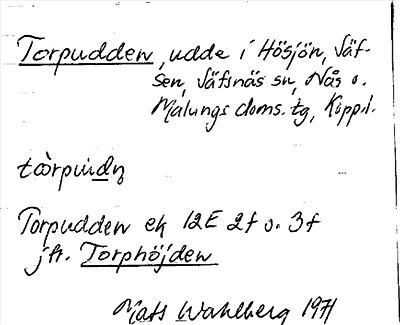 Torpudden, udde i Hösjön, Säf-
sen, Säfsnäs sn, Nås o.
Malungs doms. tg, Kopp.l.
tòrpùdṇ
Torpudden ek 12E 2f o. 3f
jfr. Torphöjden
Mats Wahlberg 1971